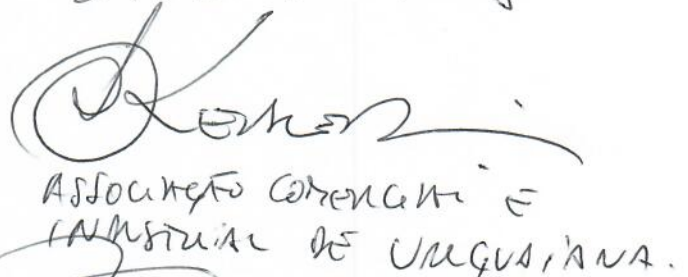 ASSOCIAÇÃO COMERCIAL E
INDUSTRIAL DE URUGUAIANA.